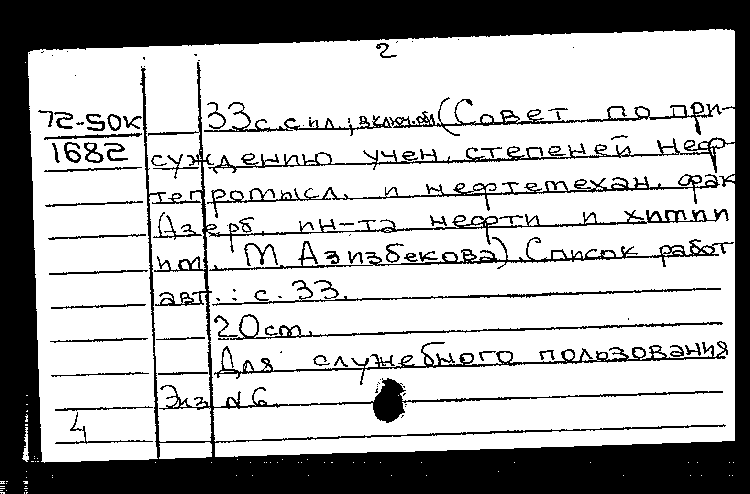 2
72-50K
1682
33 с. с ил.; включ. обл. (Совет по при-
суждению учен. степеней неф-
тепромысл. и нефтемехан. фак
Азерб. ин-та нефти и химии
им. М. Азизбекова). Список работ
авт.: с. 33.
20 cm.
Для служебного пользования
Экз N 6
4